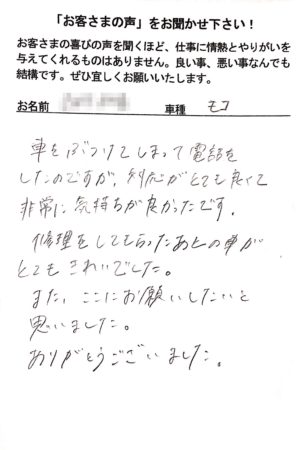 「お客さまの声」をお聞かせ下さい！
お客さまの喜びの声を聞くほど、仕事に情熱とやりがいを
与えてくれるものはありません。良い事、悪い事なんでも
結構です。ぜひ宜しくお願いいたします。
お名前 車種 モコ
車をぶつけてしまって電話を
したのですが、対応がとても良くて
非常に気持ちが良かったです。
修理をしてもらったあとの車が
とてもきれいでした。
また、ここにお願いしたいと
思いました。
ありがとうございました。